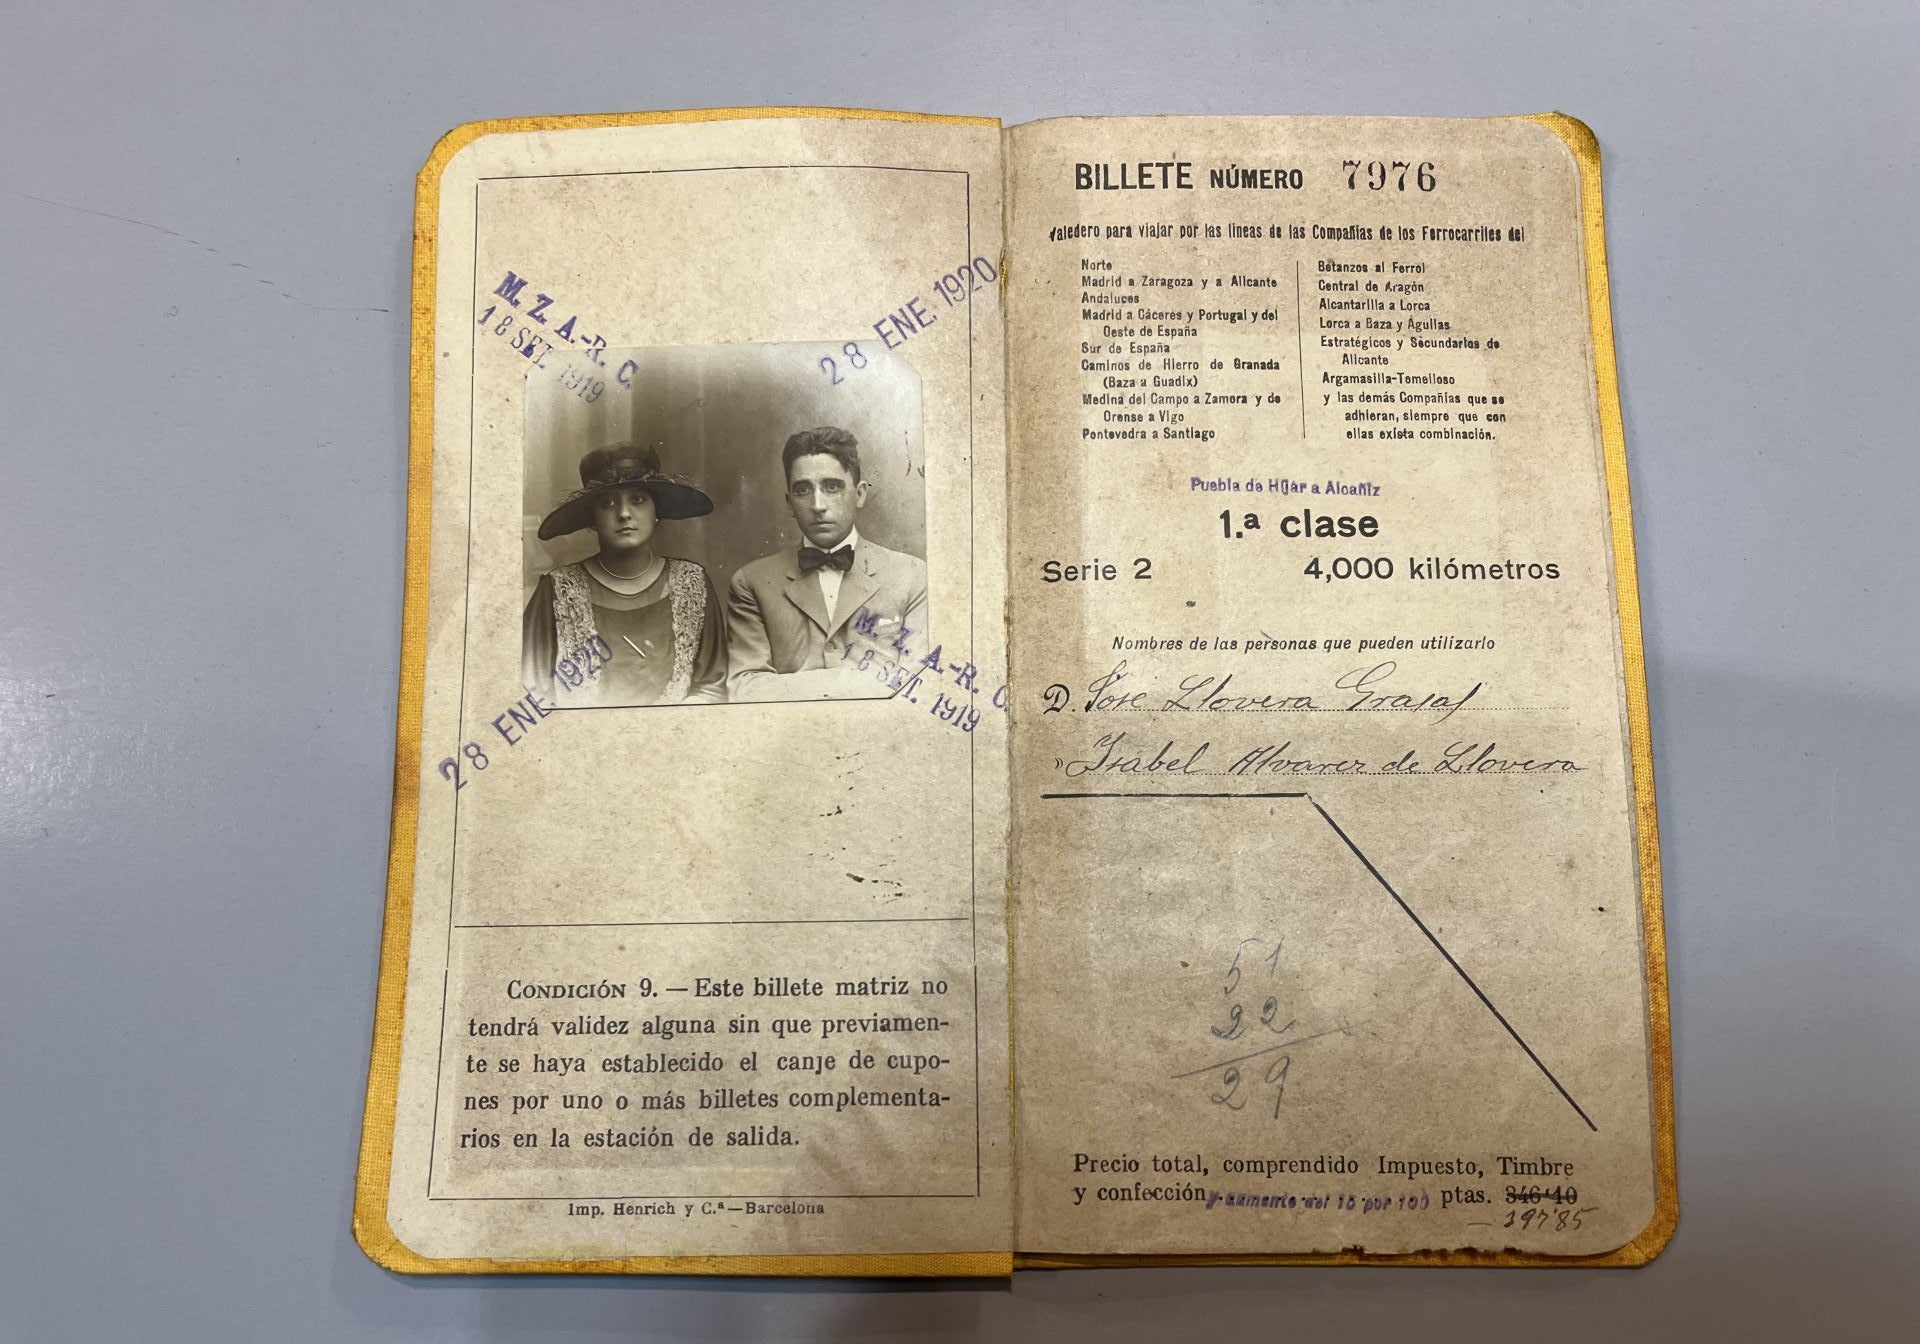 M. Z. A.-R. C.
18 SET. 1919
28 ENE. 1920
28 ENE. 1920
M. Z. A.-R. C.
18 SET. 1919
CONDICIÓN 9. — Este billete matriz no
tendrá validez alguna sin que previamen-
te se haya establecido el canje de cupo-
nes por uno o más billetes complementa-
rios en la estación de salida.
Imp. Henrich y C.ª—Barcelona
BILLETE NÚMERO 7976
Valedero para viajar por las líneas de las Compañías de los Ferrocarriles del
Norte
Madrid a Zaragoza y a Alicante
Andaluces
Madrid a Cáceres y Portugal y del
Oeste de España
Sur de España
Caminos de Hierro de Granada
(Baza a Guadix)
Medina del Campo a Zamora y de
Orense a Vigo
Pontevedra a Santiago
Betanzos al Ferrol
Central de Aragón
Alcantarilla a Lorca
Lorca a Baza y Águilas
Estratégicos y Secundarios de
Alicante
Argamasilla-Tomelloso
y las demás Compañías que se
adhieran, siempre que con
ellas exista combinación.
Puebla de Hijar a Alcañiz
1.ª clase
Serie 2 4,000 kilómetros
Nombres de las personas que pueden utilizarlo
D. José Llovera Grasas
» Isabel Alvarez de Llovera
51
22
29
Precio total, comprendido Impuesto, Timbre
y confección y aumento del 15 por 100 ptas. 346'40
— 397'85